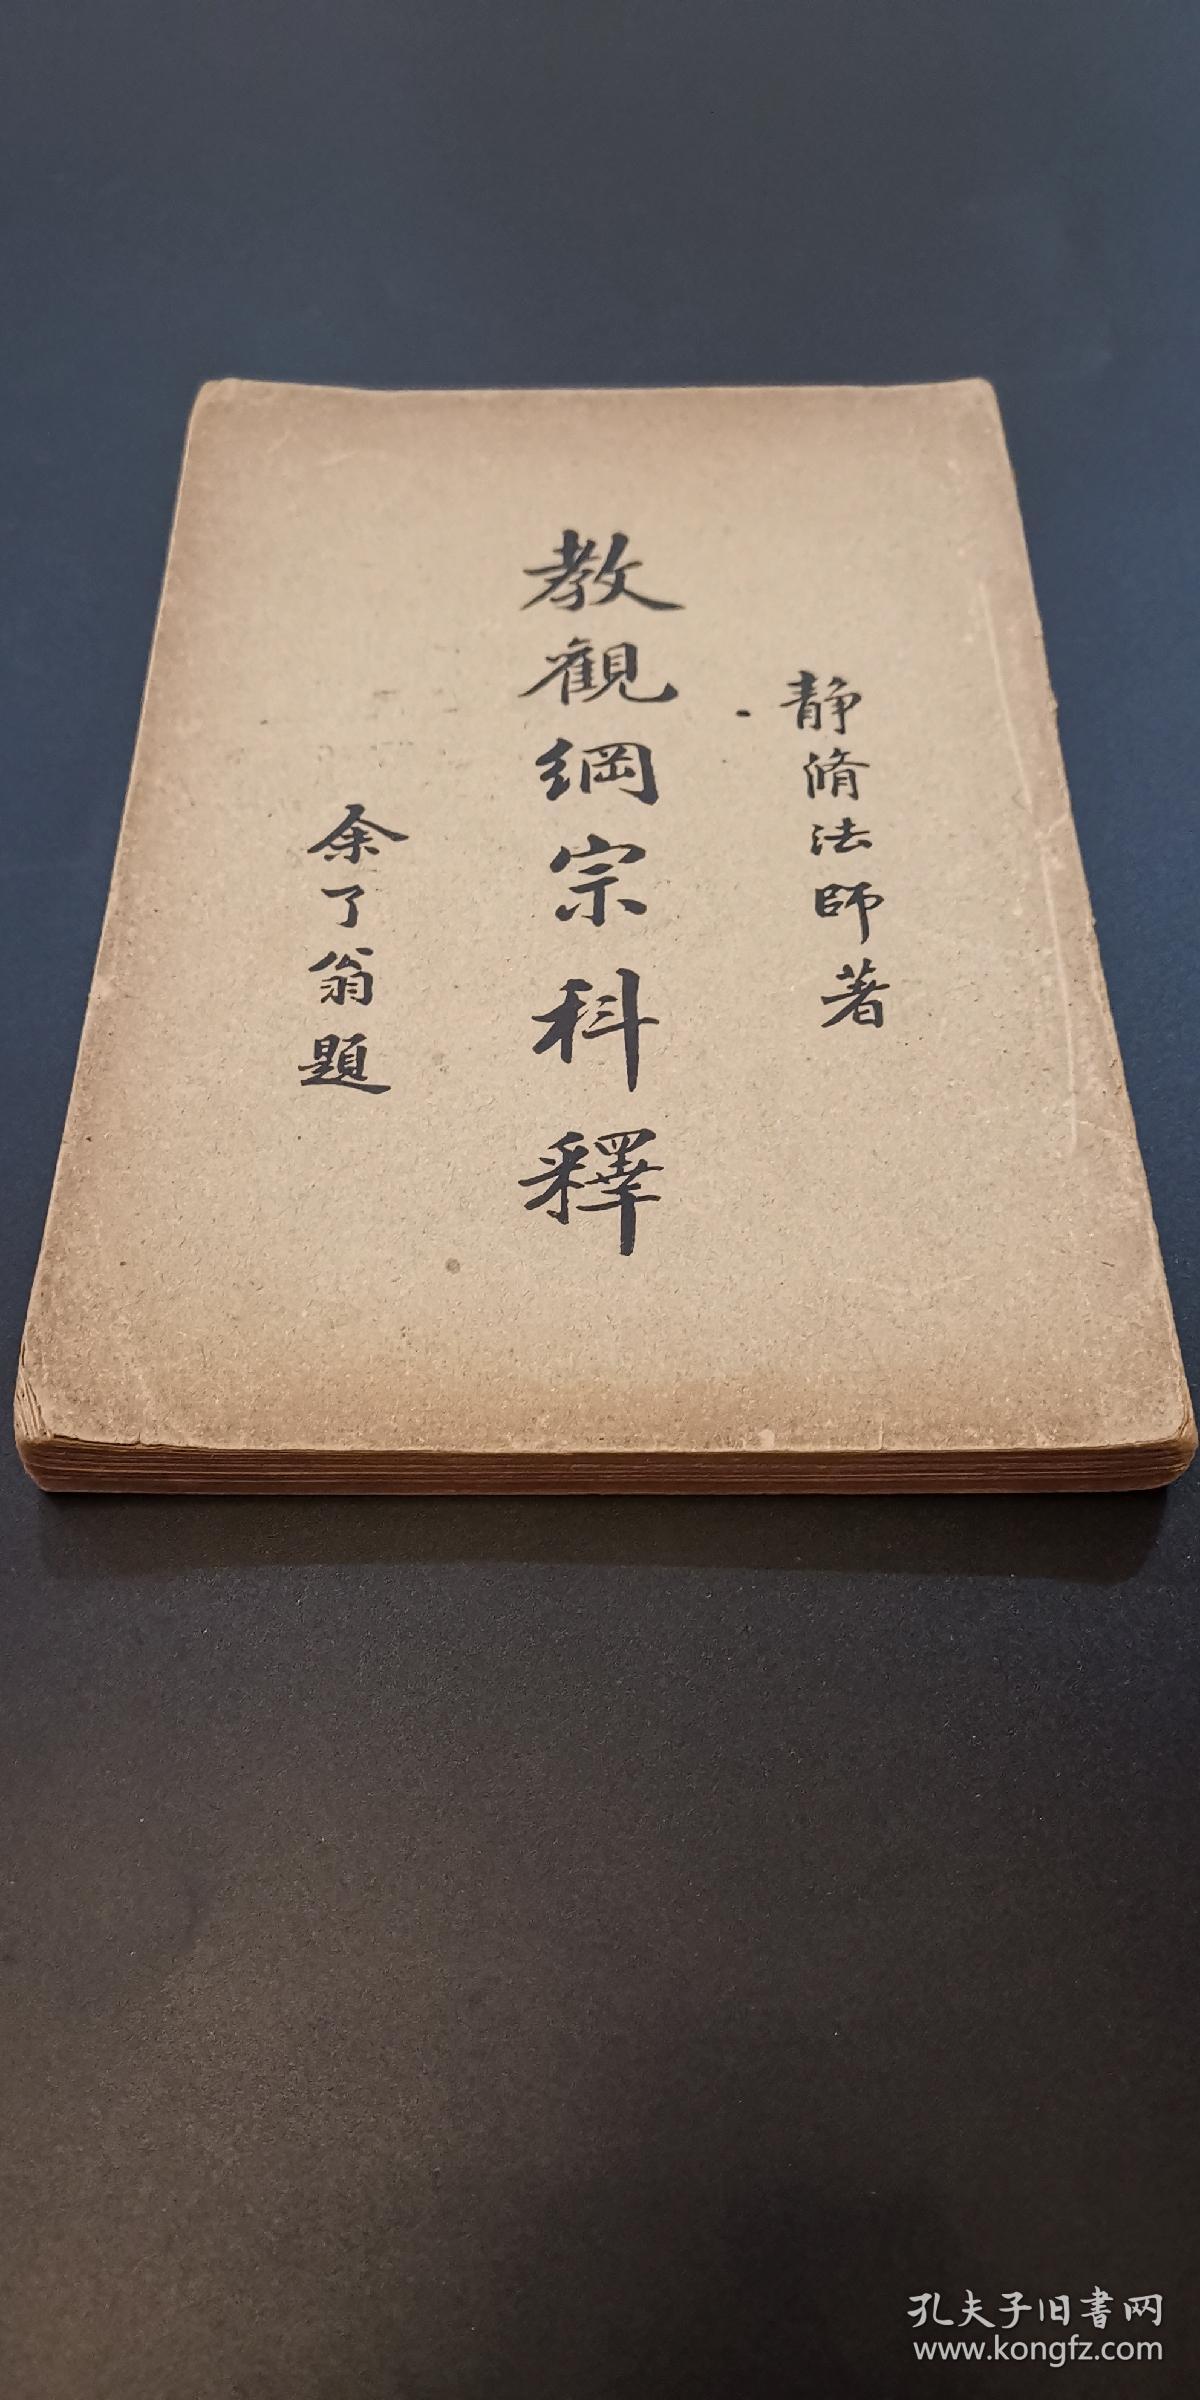 靜脩法師著
教觀綱宗科釋
余了翁題
孔夫子旧書网
www.kongfz.com